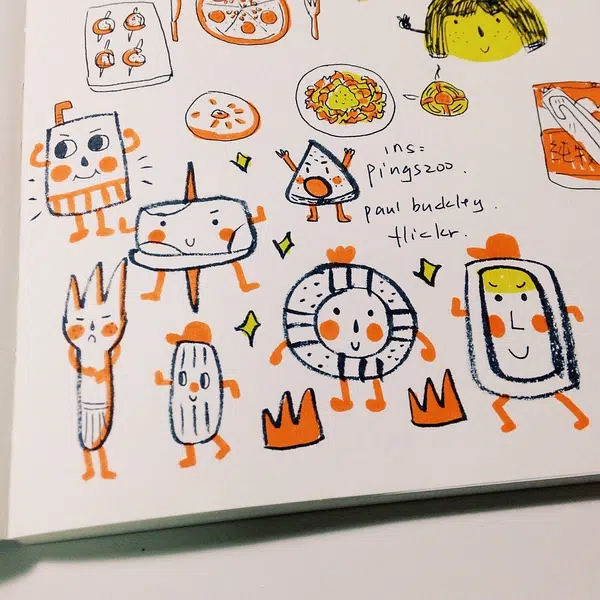 ins:
pingszoo.
paul buckley.
flickr.
純